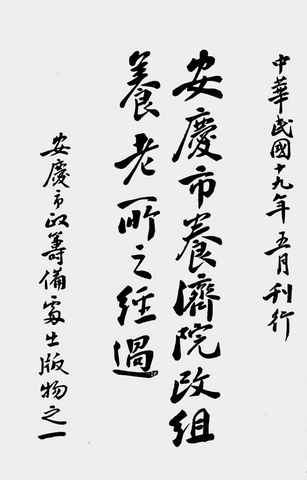 中華民國十九年五月刊行
安慶市養濟院改組
養老所之經過
安慶市政籌備處出版物之一